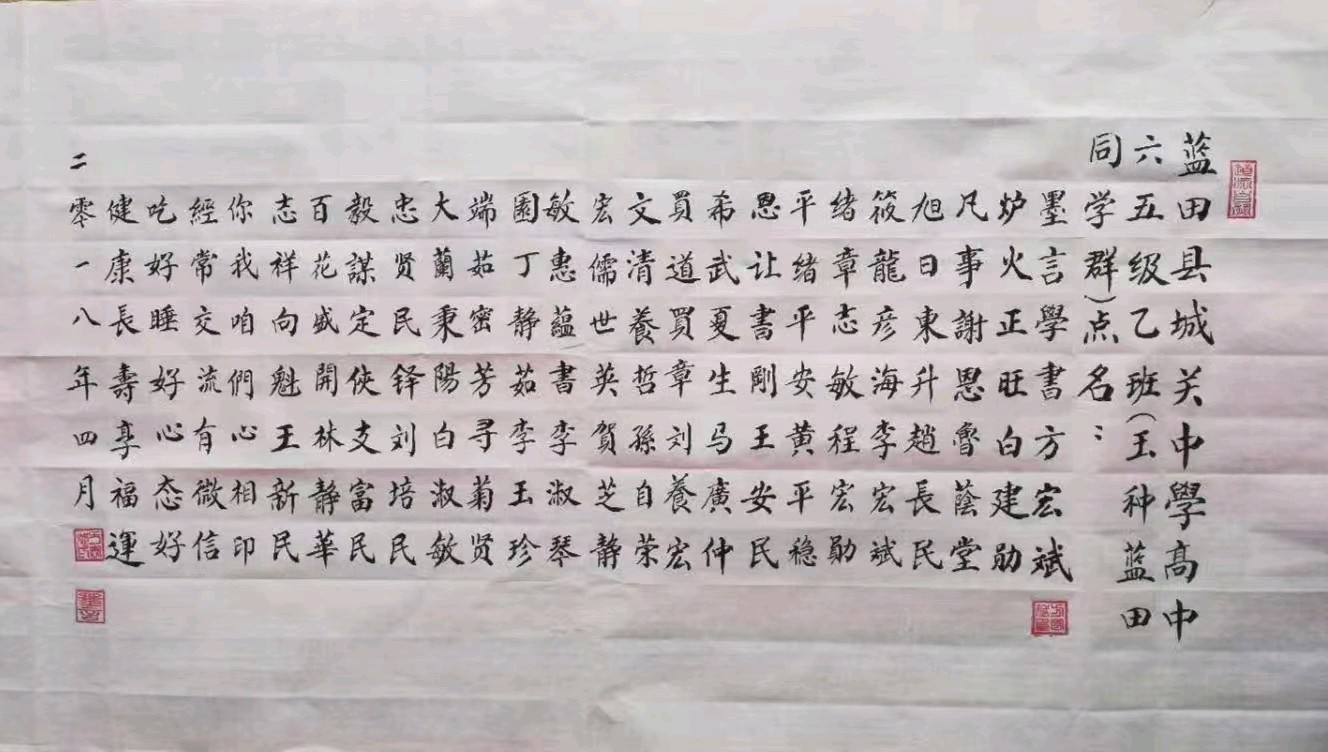 蓝田县城关中學髙中
六五级乙班（玉种蓝田
同学群）点名：
墨言學書方宏斌
炉火正旺白建勋
凡事謝恩魯蔭堂
旭日東升趙長民
筱龍彦海李宏斌
绪章志敏程宏勋
平绪平安黄平穏
恩让書剛王安民
希武夏生马廣仲
買道買章刘養宏
文清養哲孫自荣
宏儒世英賀芝静
敏惠蘊書李淑琴
園丁静茹李玉珍
端茹密芳寻菊贤
大蘭秉陽白淑敏
忠贤民铎刘培民
毅謀定侠支富民
百花盛開林静華
志祥向魁王新民
你我咱們心相印
經常交流有微信
吃好睡好心态好
健康長壽享福運
二零一八年四月